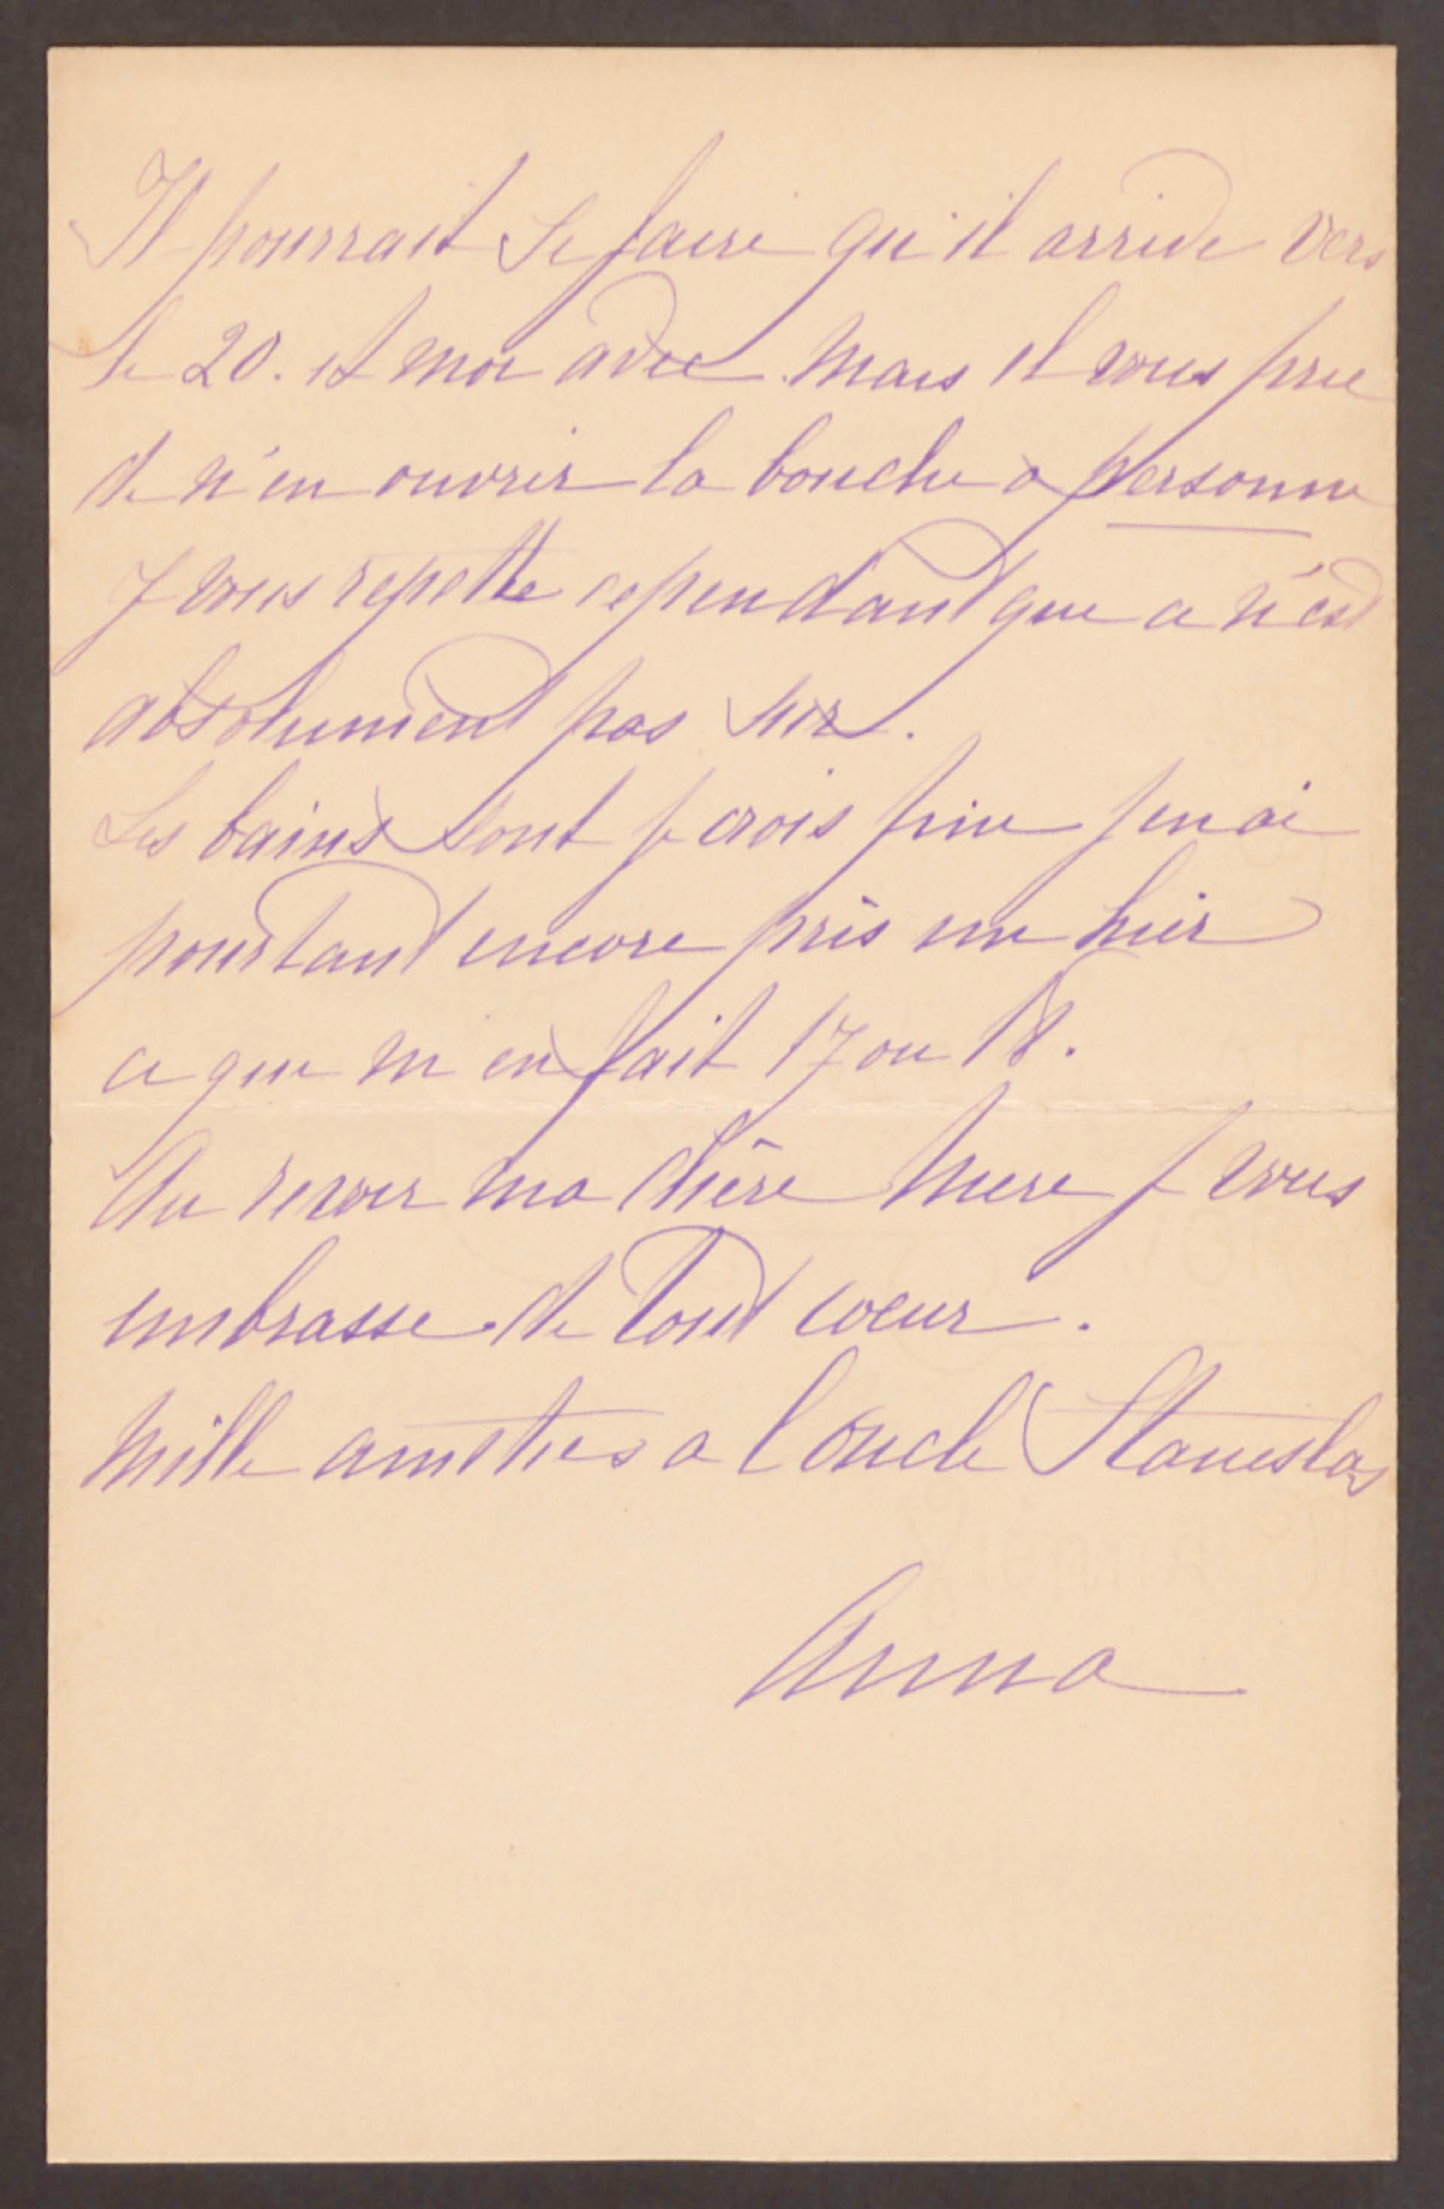 Il pourrait se faire qu'il arrive vers
le 20. et moi avec. Mais il vous prie
de n'en ouvrir la bouche a personne
Je vous repette cependant que ce n'est
absolument pas sur.
Les bains sont je crois finis j'en ai
pourtant encore pris un hier
ce qui m'en fait 17 ou 18.
Au revoir ma chère Mere je vous
embrasse de tout coeur.
Mille amities a l'oncle Stanislas
Anna